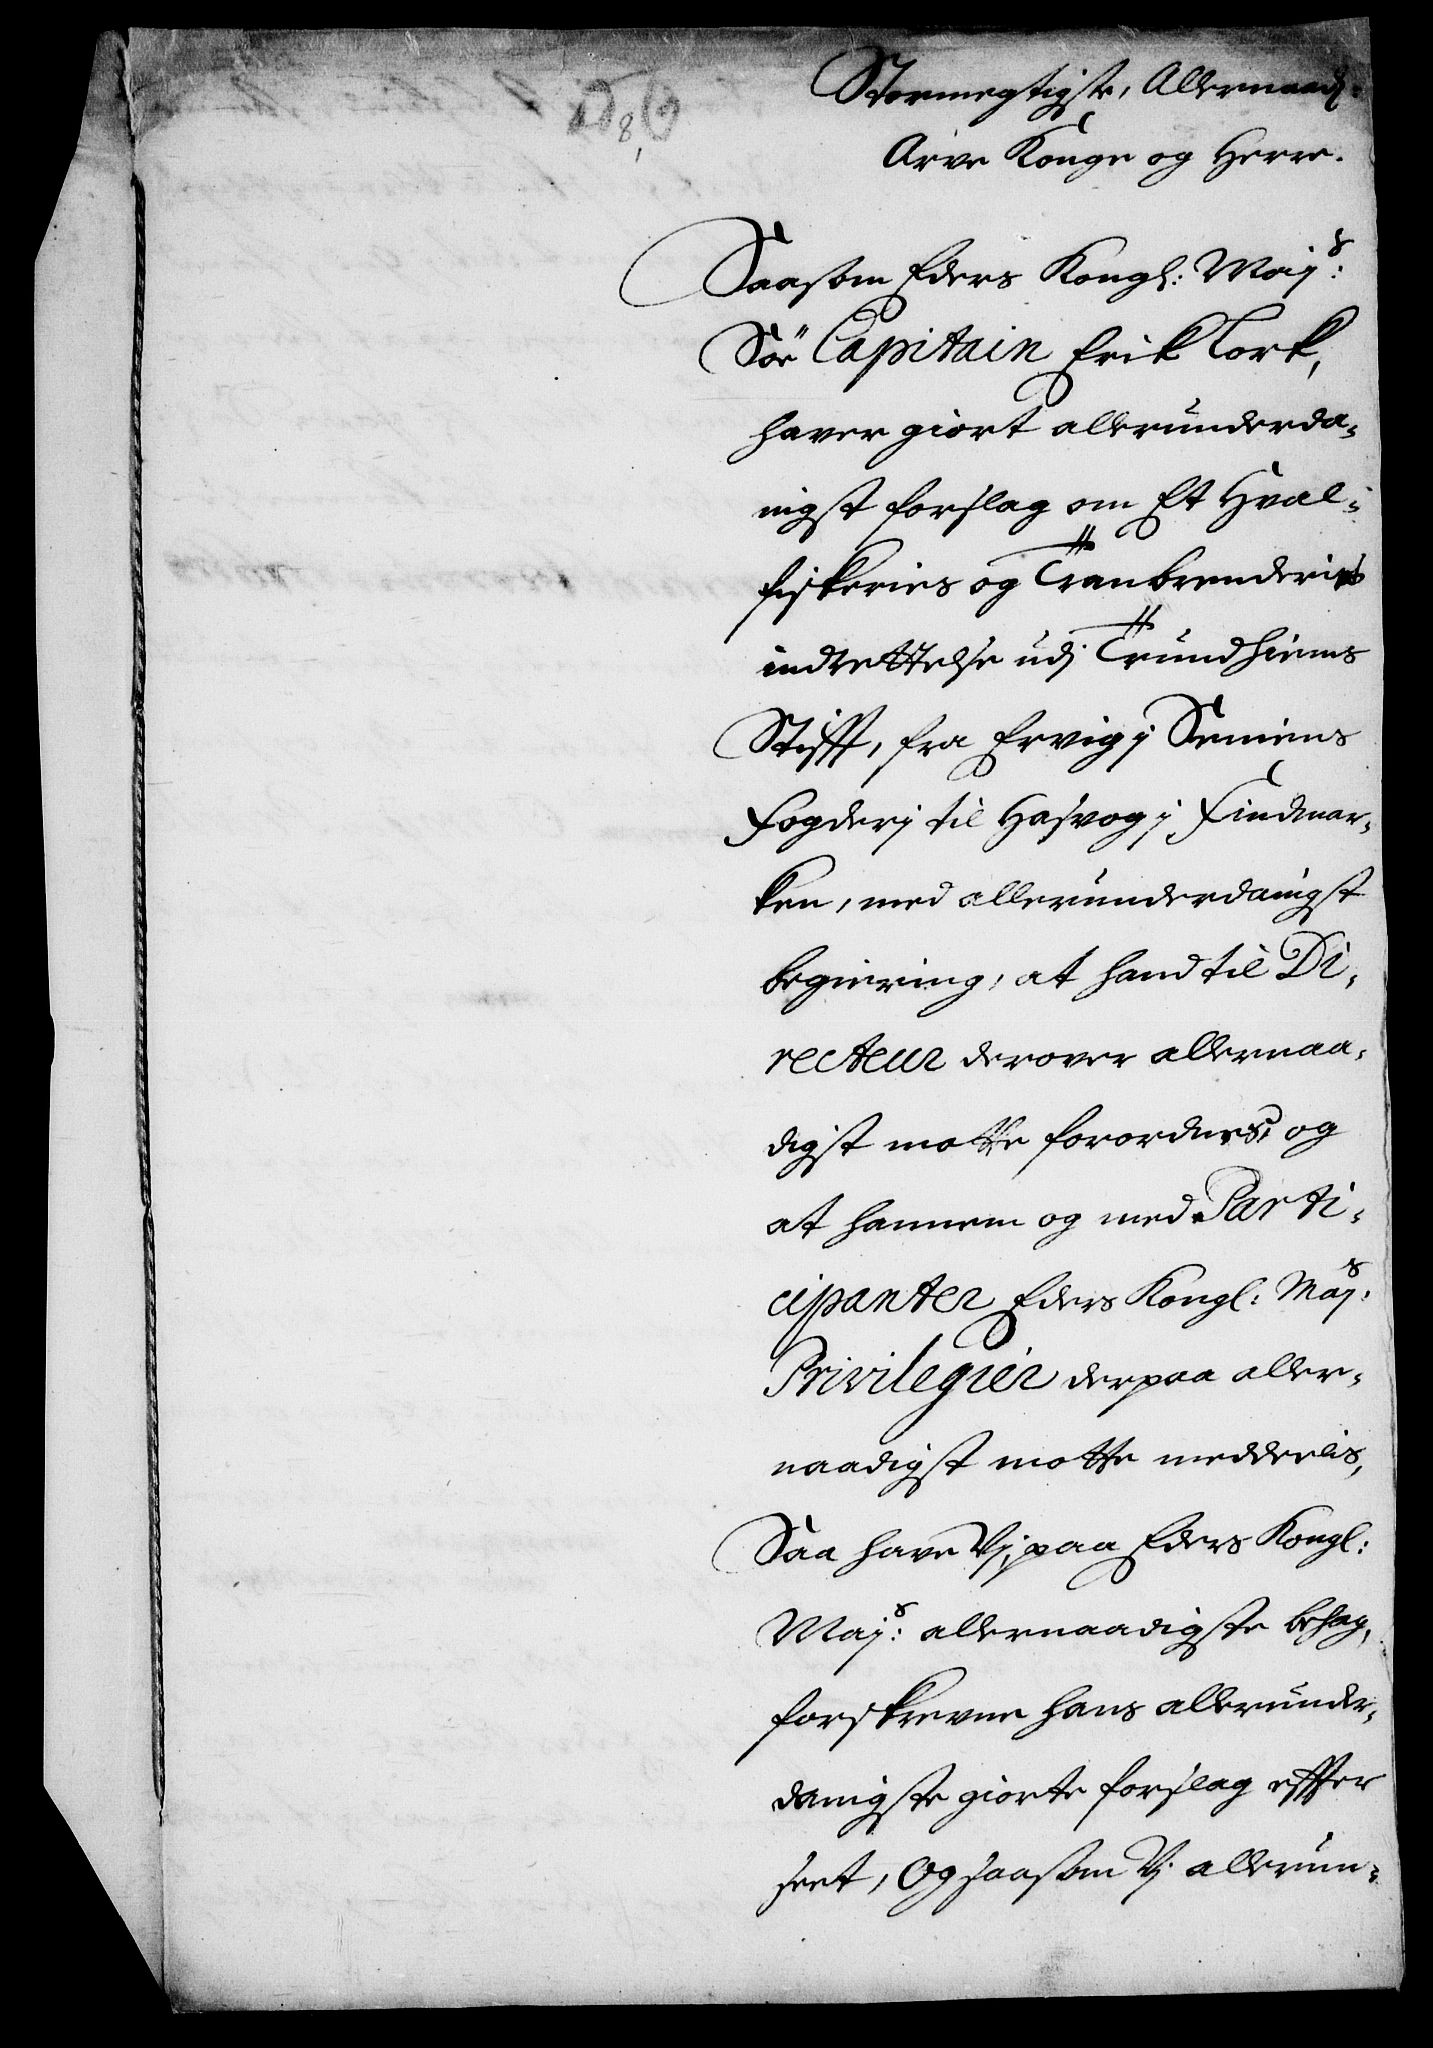 Stormegtigste, Allernaadj:
Arve Konge og Herre.
Saasom Eders Kongl: Maijs:
Söe Capitain Erik Lork,
haver giort allerunderda-
nigst forslag om Et Hval-
fiskeries og Tranbrenderies
indrettelse udj Trundhiems
Stifft, fra Ervig j Seniens
Fogderj til Hasvog j Findmar-
ken, med allerunderdanigst
begiering, at hand til Di-
recteur derover allernaa-
digst motte forordnes, og
at hannem og med Parti-
cipanter Eders Kongl: Majs:
Privilegier derpaa aller-
naadigst motte meddeelis,
Saa have Vj, paa Eders Kongl:
Majs: allernaadigste behag,
forskrevne hans allerunder-
danigste giorte forslag effter
seet, Og saasom Vj allerun-